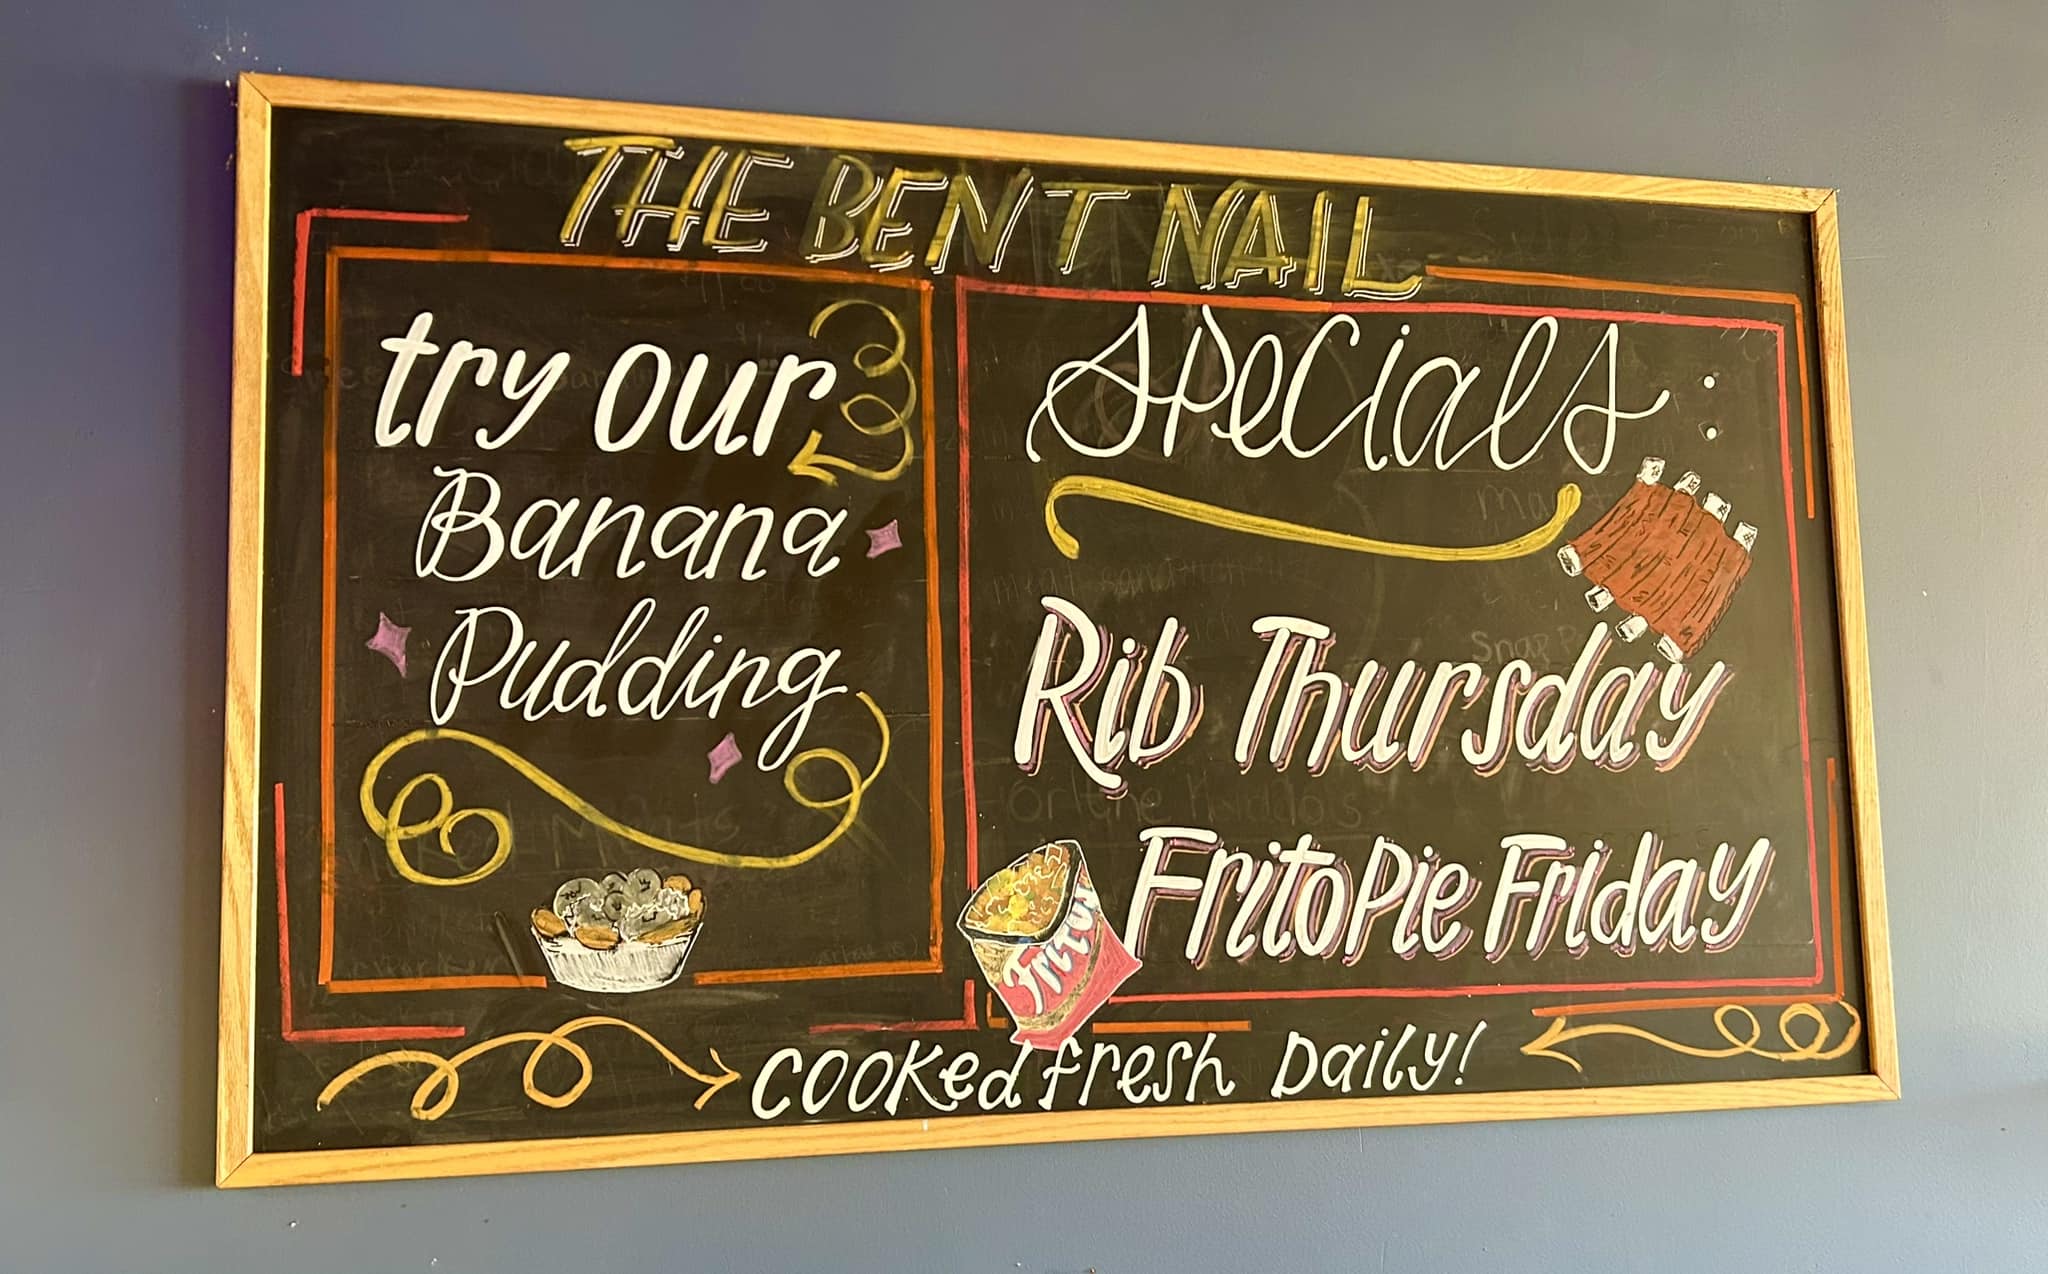 THE BENT NAIL
try our
Banana
Pudding
Specials:
Rib Thursday
Frito Pie Friday
Fritos
Cooked fresh Daily!